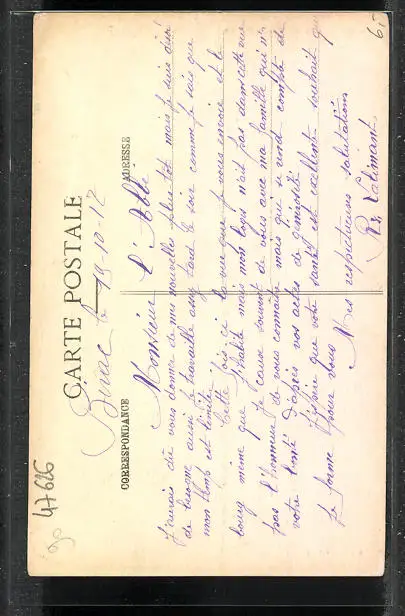 CARTE POSTALE
CORRESPONDANCE
ADRESSE
Birac le 19-10-12
Monsieur l'Abbé
J'aurais dû vous donner de mes nouvelles plus tôt mais je suis
de besogne aussi je travaille assez tard le soir comme je sais que
mon temp est limité
Cette fois ci la vue que je vous envoie est le
bourg même que j'habite mais mon logis n'est pas dans cette vue
je cause souvent de vous avec ma famille qui n'a
pas l'honneur de vous connaitre mais qui se rend compte de
votre bonté d'après vos actes de générosité
J'espère que votre santé est excellente souhait que
je forme pour vous Mes respectueuses salutations
47626
6,-